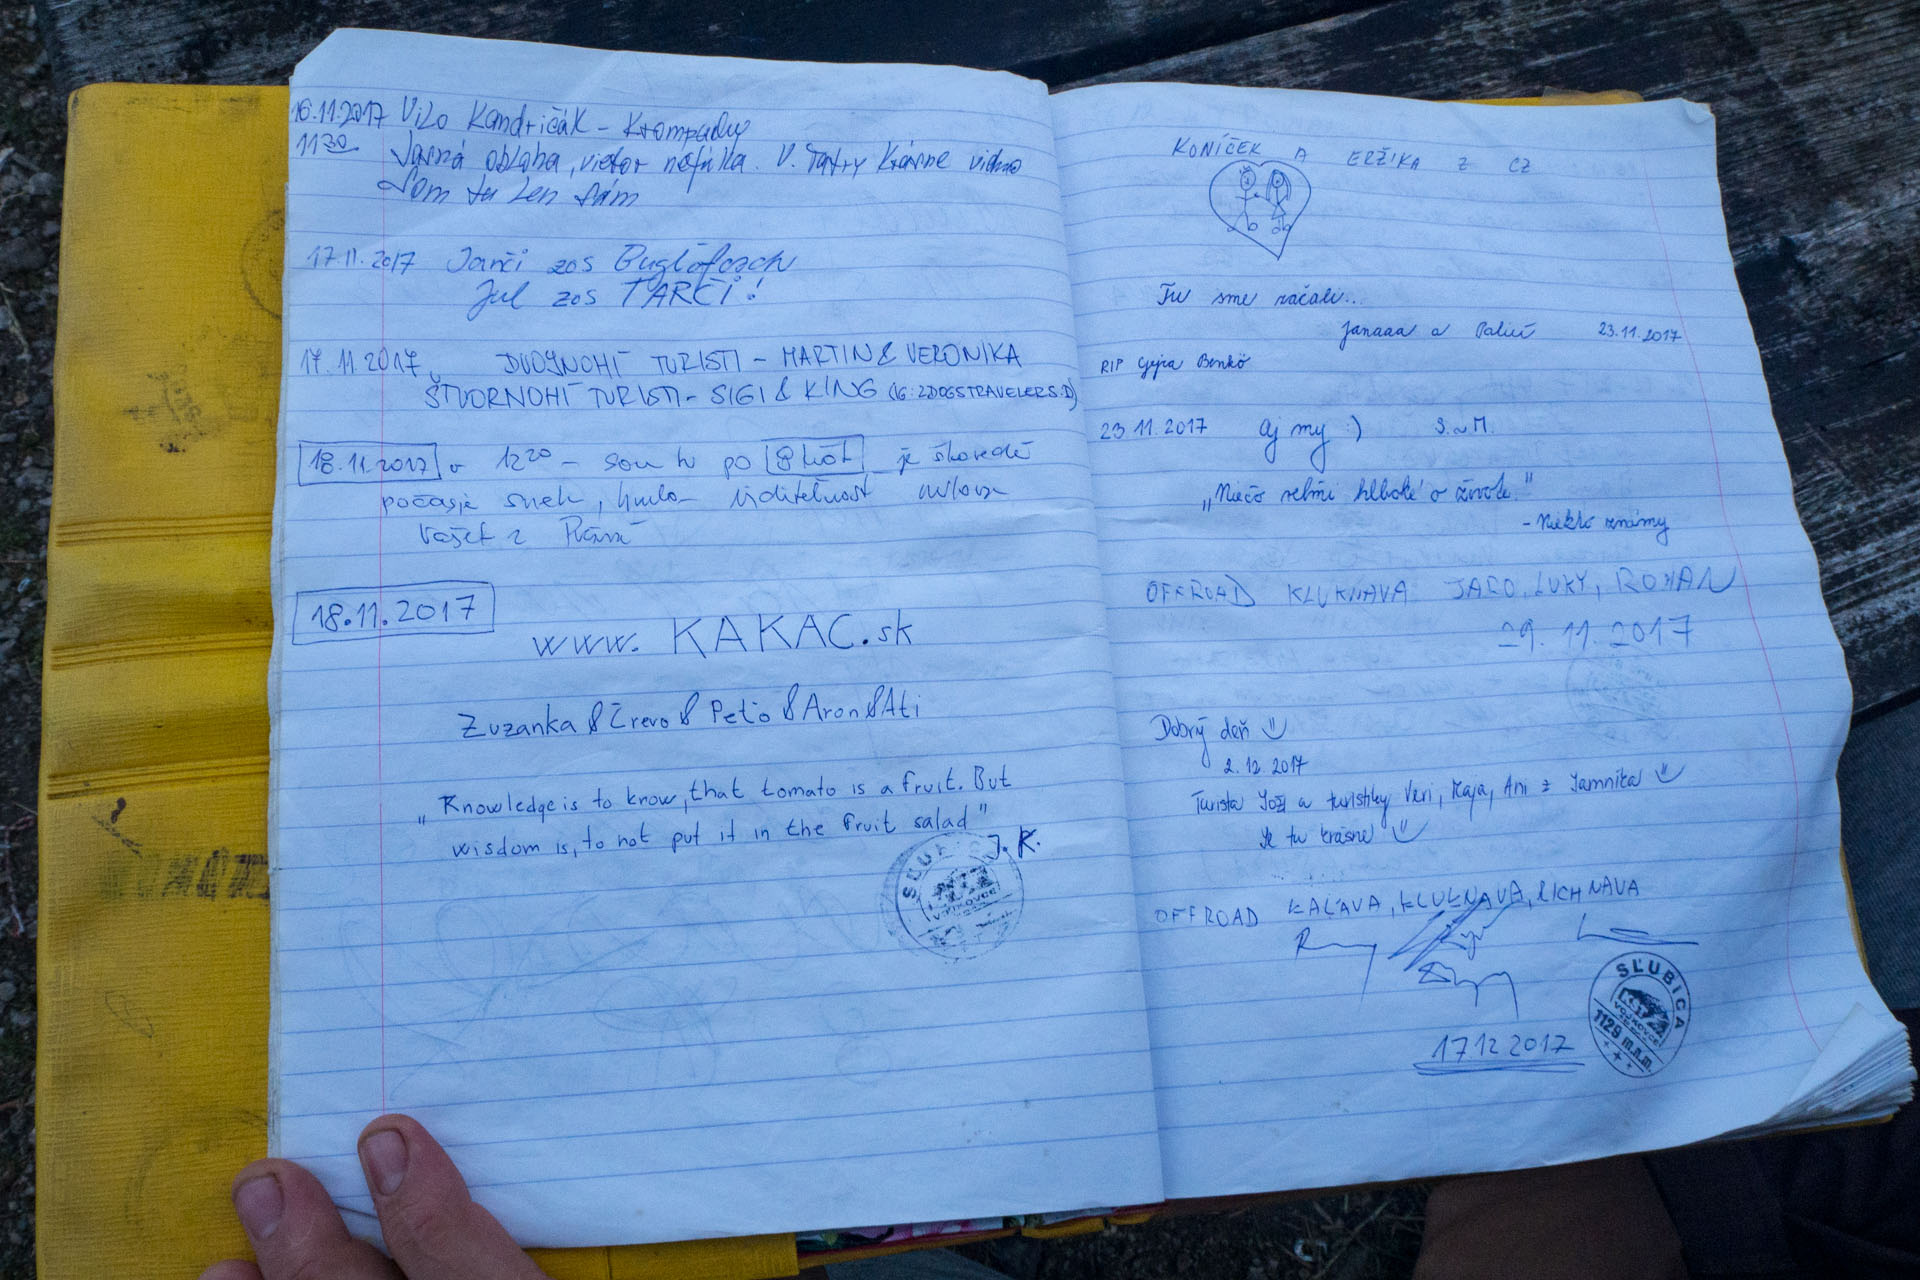 16.11.2017 Vilo Kandričák - Krompachy
11 30 Jasná obloha, vietor nefúka. V. Tatry krásne vidno
Som tu len sám
17.11.2017 Janči zos
Jul zos ŤARČI!
17.11.2017 DVOJNOHÍ TURISTI - MARTIN & VERONIKA
ŠTVORNOHÍ TURISTI - SIGI & KING (IG: 2DOGSTRAVELERS:D)
18.11.2017 o 12 20 - som tu po 8 je škaredé
počasie sneh, hmla viditeľnosť
Vašek z
18.11.2017
www.KAKAC.sk
Zuzanka & Črevo & Peťo & Aron & Ati
„Knowledge is to know, that tomato is a fruit. But
wisdom is, to not put it in the fruit salad"
J.K.
VOJKOVCE
KONÍČEK A ERŽIKA Z CZ
Tu sme začali...
Janaaa a 23.11.2017
RIP Gejza Benkő
23.11.2017 aj my :) S. a M.
„Niečo veľmi hlboké o živote."
- Niekto známy
OFFROAD KLUKNAVA JARO, LUKY, ROMAN
29.11.2017
Dobrý deň
2.12.2017
Turista Joži a turistky Veri, Kaja, Ani z Jamníka
Je tu krásne
OFFROAD KAĽAVA, KLUKNAVA, RICHNAVA
17 12 2017
SĽUBICA
KST
VOJKOVCE
1129 m.n.m.